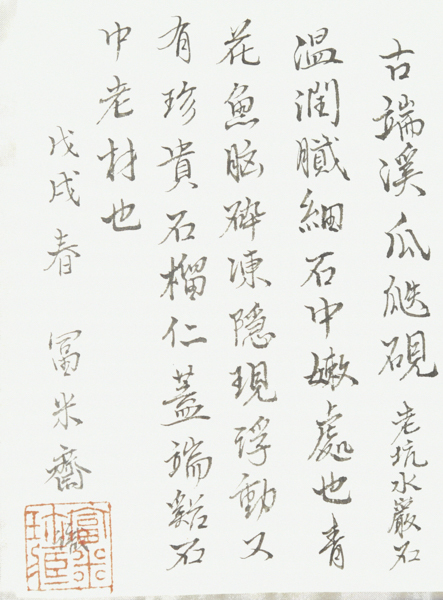 古端溪瓜瓞硯 老坑水巖石
温潤膩細石中嫩處也青
花魚脳碎凍隱現浮動又
有珍貴石榴仁蓋端谿石
中老材也
戊戌春 冨米齋